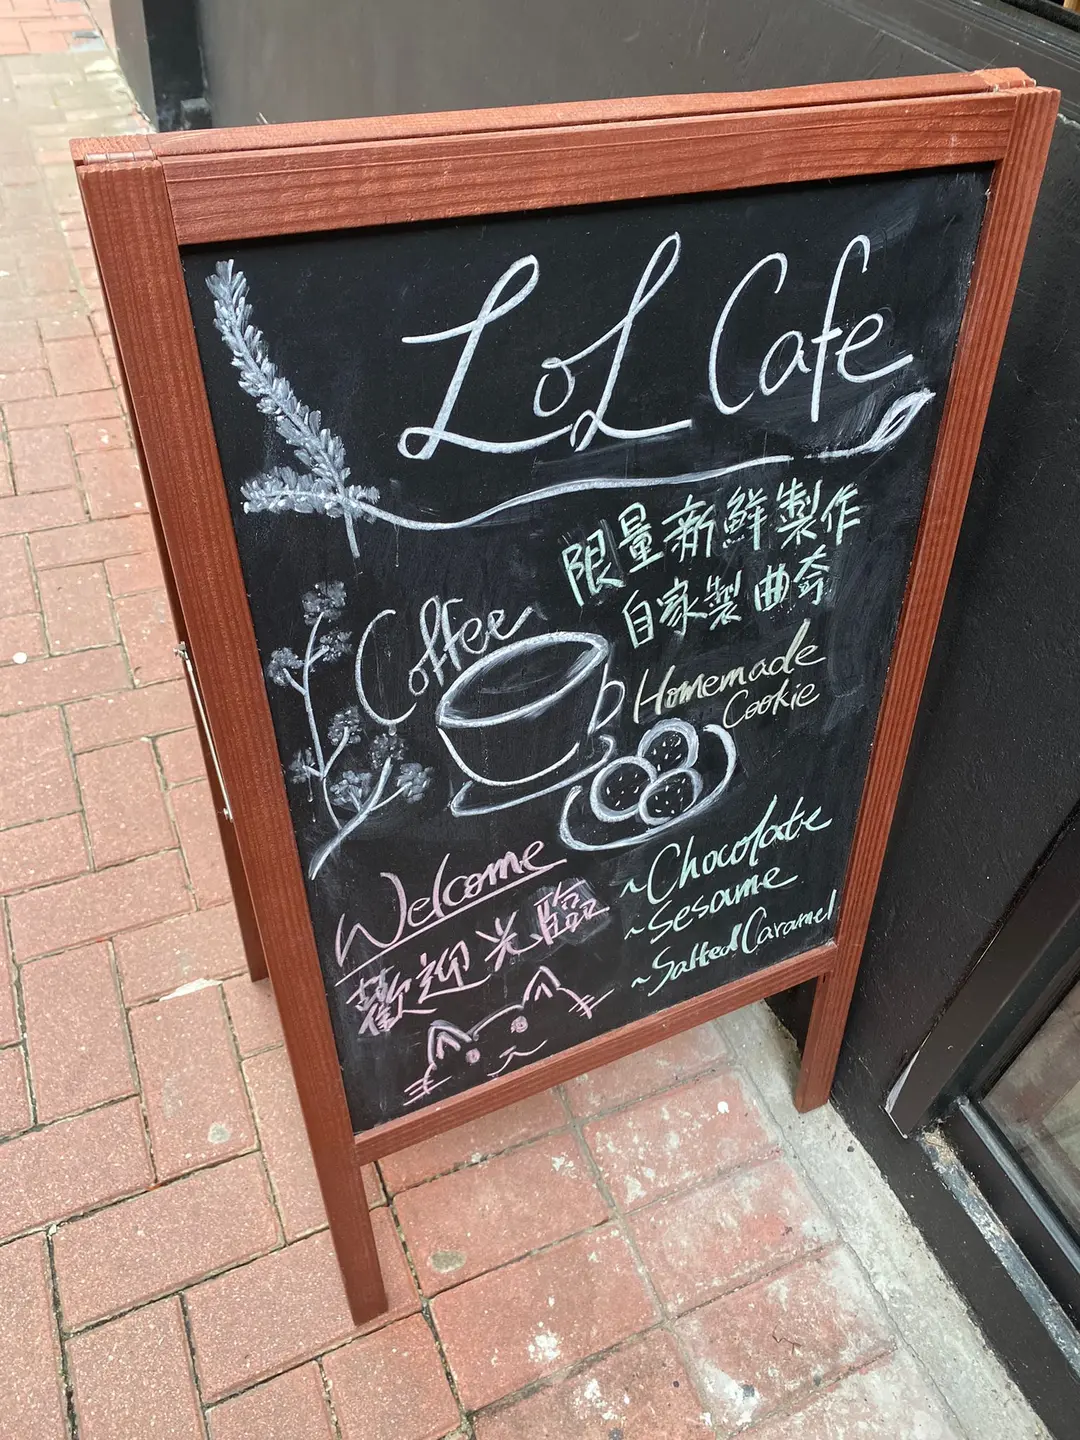 LoL Cafe
限量新鮮製作
自家製曲奇
Coffee
Homemade
Cookie
~Chocolate
~Sesame
~Salted Caramel
Welcome
歡迎光臨